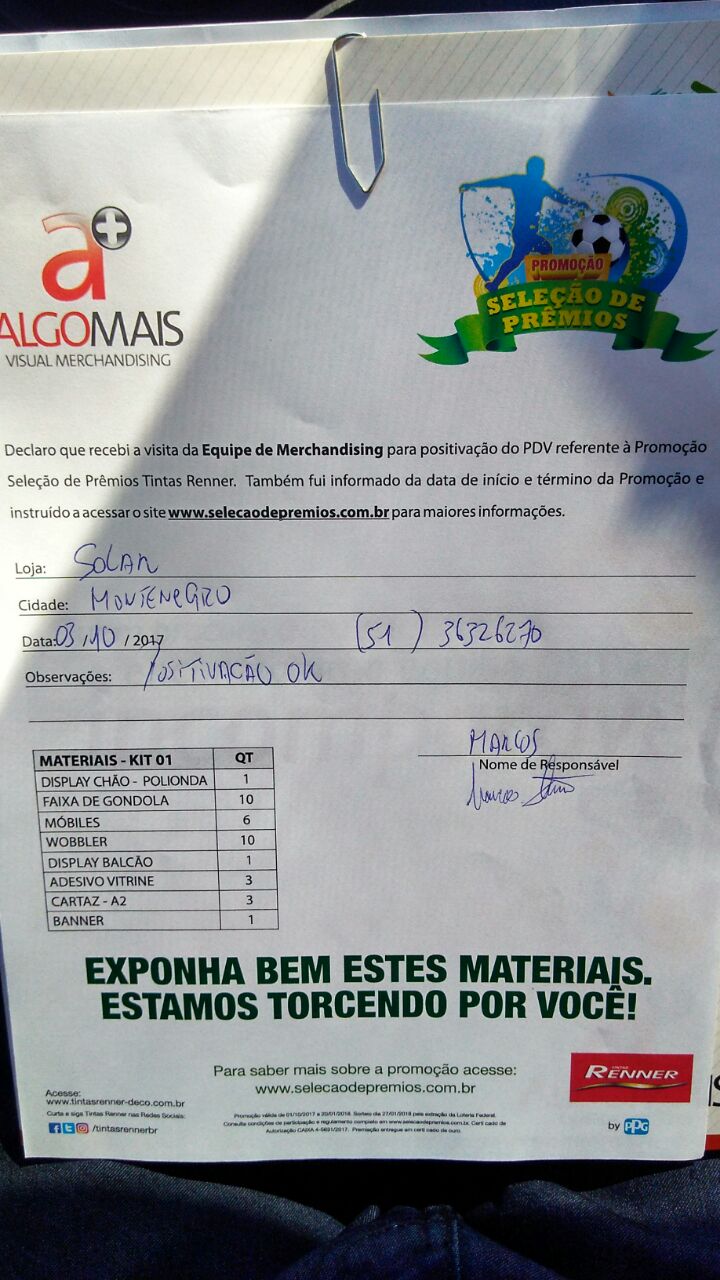 a+
ALGOMAIS
VISUAL MERCHANDISING
PROMOÇÃO
SELEÇÃO DE
PRÊMIOS
Declaro que recebi a visita da Equipe de Merchandising para positivação do PDV referente à Promoção
Seleção de Prêmios Tintas Renner. Também fui informado da data de início e término da Promoção e
instruído a acessar o site www.selecaodepremios.com.br para maiores informações.
Loja: SOLAR
Cidade: MONTENEGRO
Data: 03 / 10 / 2017 (51) 36326270
Observações: POSITIVAÇÃO OK
MARCOS
Nome de Responsável
Marcos
MATERIAIS - KIT 01 QT
DISPLAY CHÃO - POLIONDA 1
FAIXA DE GONDOLA 10
MÓBILES 6
WOBBLER 10
DISPLAY BALCÃO 1
ADESIVO VITRINE 3
CARTAZ - A2 3
BANNER 1
EXPONHA BEM ESTES MATERIAIS.
ESTAMOS TORCENDO POR VOCÊ!
Para saber mais sobre a promoção acesse:
www.selecaodepremios.com.br
TINTAS
RENNER
by PPG
Acesse:
www.tintasrenner-deco.com.br
Curta e siga Tintas Renner nas Redes Sociais:
/tintasrennerbr
Promoção válida de 01/10/2017 a 20/01/2018. Sorteio dia 27/01/2018 pela extração da Loteria Federal.
Consulte condições de participação e regulamento completo em www.selecaodepremios.com.br. Certificado de
Autorização CAIXA 4-5691/2017. Premiação entregue em certificado de ouro.